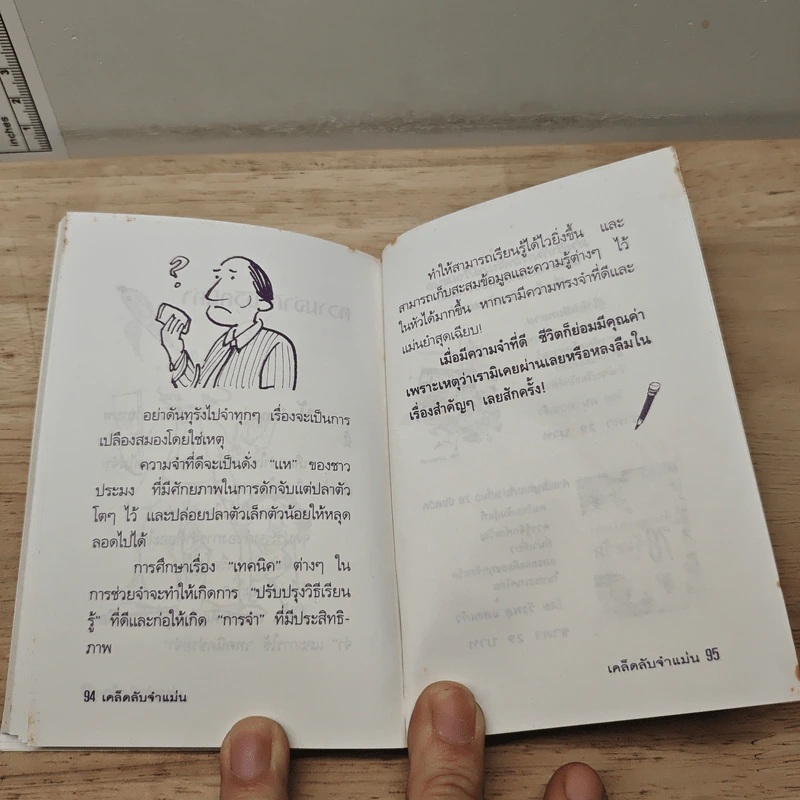 inches
2
3
?
อย่าดันทุรังไปจำทุกๆ เรื่องจะเป็นการ
เปลืองสมองโดยใช่เหตุ
ความจำที่ดีจะเป็นดั่ง "แห" ของชาว
ประมง ที่มีศักยภาพในการดักจับแต่ปลาตัว
โตๆ ไว้ และปล่อยปลาตัวเล็กตัวน้อยให้หลุด
ลอดไปได้
การศึกษาเรื่อง "เทคนิค" ต่างๆ ใน
การช่วยจำจะทำให้เกิดการ "ปรับปรุงวิธีเรียน
รู้" ที่ดีและก่อให้เกิด "การจำ" ที่มีประสิทธิ-
ภาพ
94 เคล็ดลับจำแม่น
ทำให้สามารถเรียนรู้ได้ไวยิ่งขึ้น และ
สามารถเก็บสะสมข้อมูลและความรู้ต่างๆ ไว้
ในหัวได้มากขึ้น หากเรามีความทรงจำที่ดีและ
แม่นยำสุดเฉียบ!
เมื่อมีความจำที่ดี ชีวิตก็ย่อมมีคุณค่า
เพราะเหตุว่าเรามิเคยผ่านเลยหรือหลงลืมใน
เรื่องสำคัญๆ เลยสักครั้ง!
เคล็ดลับจำแม่น 95